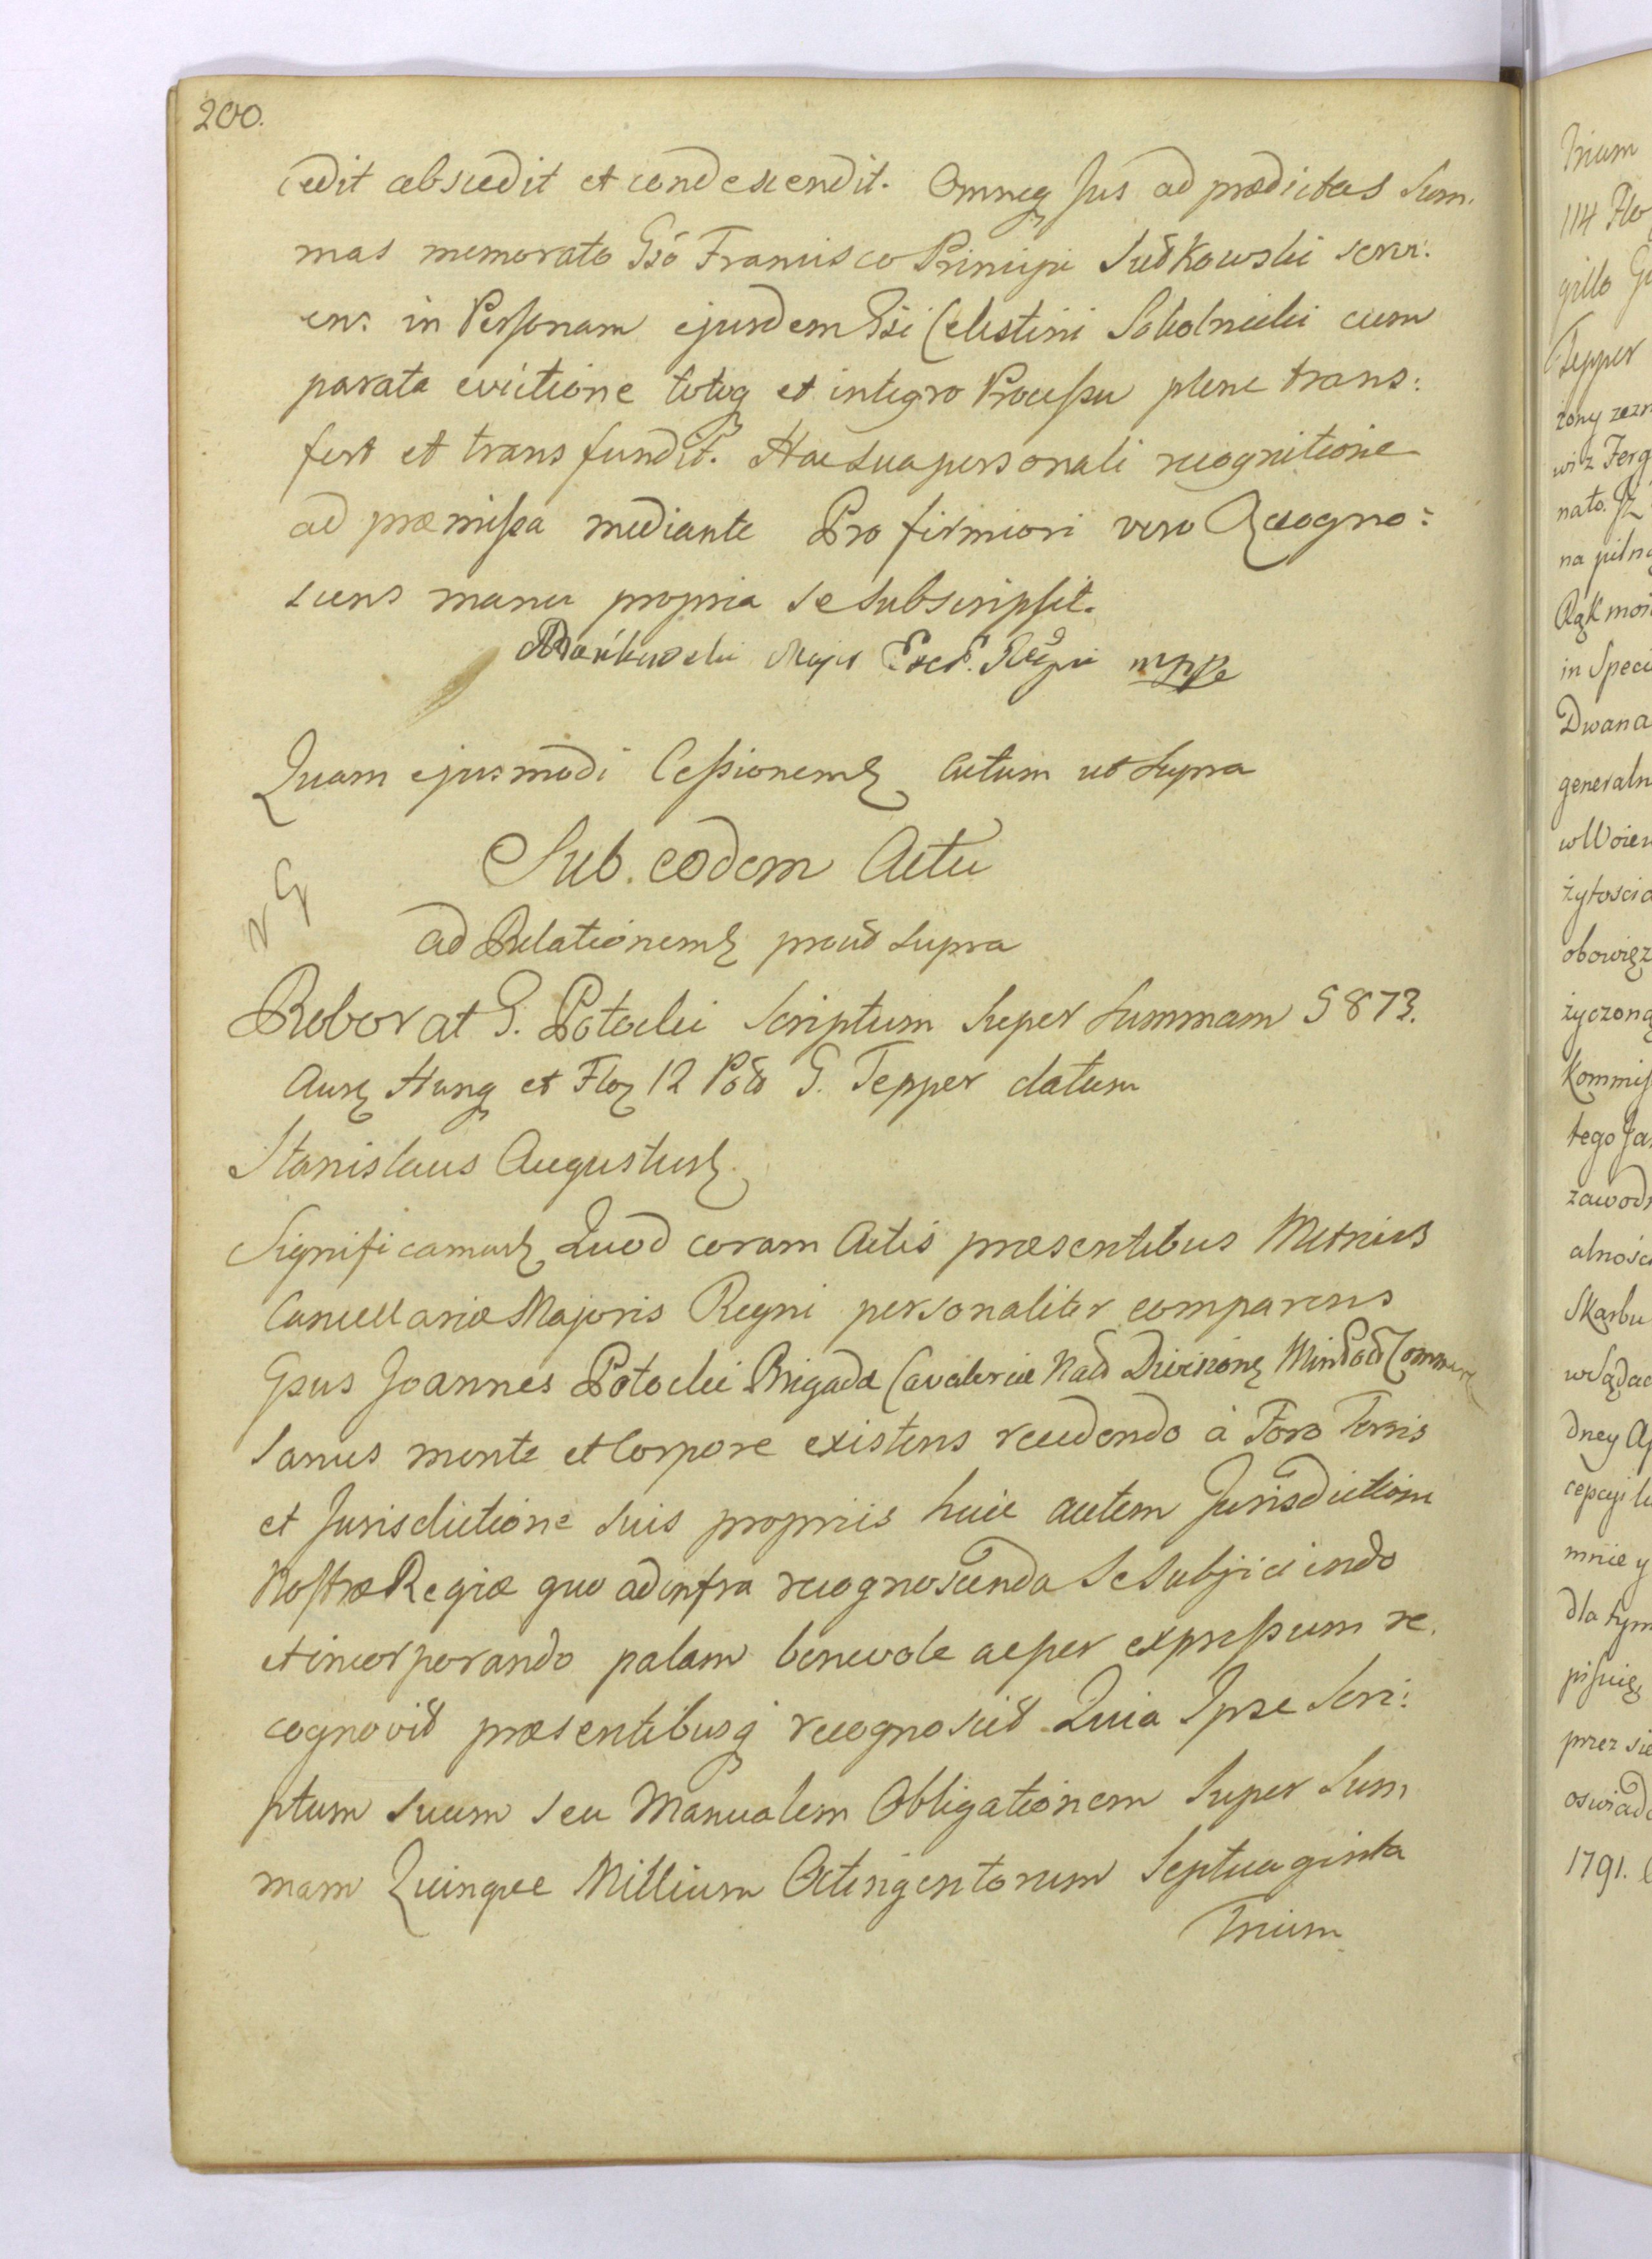 200.
cedit abscedit et condescendit. Omneq Jus ad prædictas Sum.
mas memorato Gso Francisco Principi Sułkowski servi:
ens in Personam ejusdem Gsi Celestini Sokolnicki cum
parata evictione totoq et integro Processu plene trans:
fert et transfundit. Hac sua personali recognitione
ad præmissa mediante Pro firmiori vero Recogno:
scens manu propria se subscripsit.
mppa
Quam ejusmodi Cessionem Actum ut supra
Sub. eodem Actu
ad Relationem prout supra
Roborat G. Potocki Scriptum super summam 5873.
Aur Hung et Flor 12 Pol G. Tepper datum
Stanislaus Augustus
Significamus Quod coram Actis præsentibus Metrices
Cancellariæ Majoris Regni personaliter comparens
Gsus Joannes Potocki Brigadæ Cavaleriæ Nat Division Min Pol Commen
sanus mente et Corpore existens recedendo à Foro Terris
et Jurisdictione suis propriis huic autem Jurisdictioni
Nostræ Regiæ quo ad infra recognoscenda se subjiciendo
et incorporando palam benevole ac per expressum re.
cognovit præsentibusq recognoscit Quia Ipse Scri:
ptum suum seu Manualem Obligationem super Sum
mam Quinque Millium Octingentorum Septuaginta
Trium
Trium
114 Flo
gillo
Tepper
żony
nato.
na piln
Rąk
in Speci
Dwana
generaln
w Woiew
żytości
obowięz
życzon
Kommis
tego
zawod
alnośc
Skarbu
w Sądac
dney
mnie y
dla tym
przez się
oświad
1791.